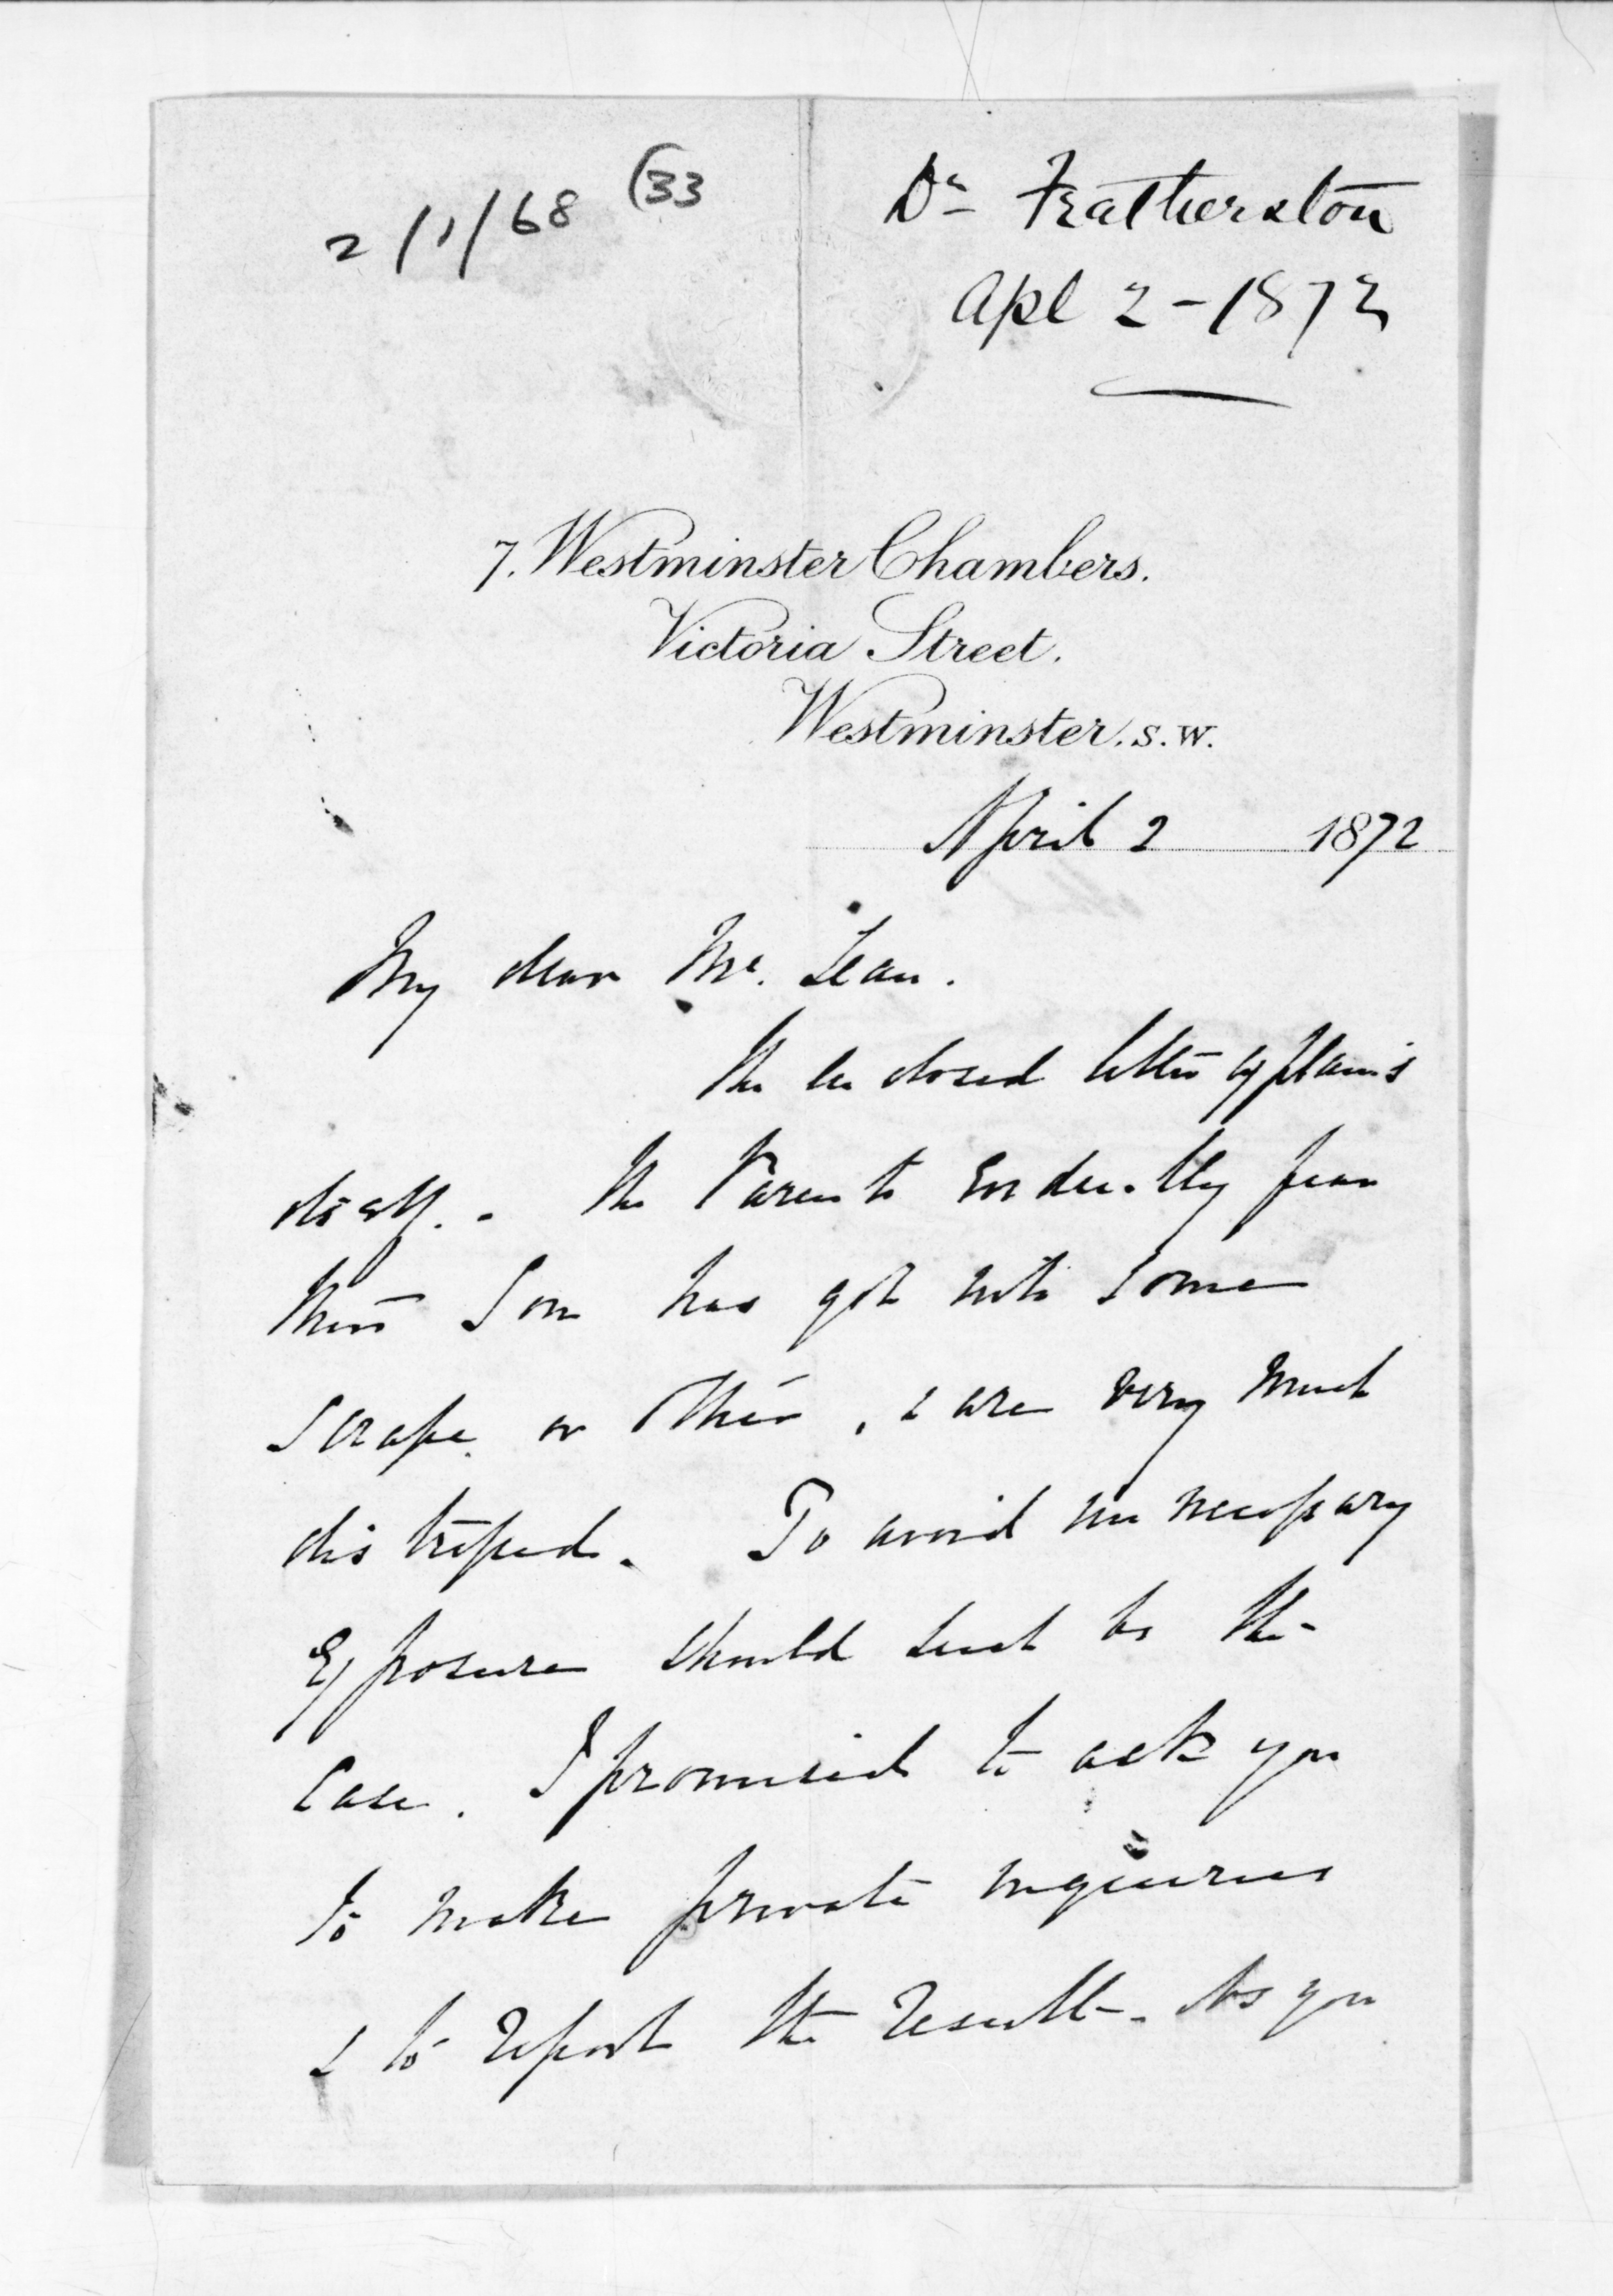 2/1/68 (33
Dr Featherston
Apl 2 - 1872
7. Westminster Chambers.
Victoria Street.
Westminster. S.W.
April 2 1872
My dear Mc. Lean.
The enclosed letter explains
itself. - The Parents evidently fear
their Son has got into some
scrape or other, & are very much
distressed. To avoid unnecessary
Exposure should such be the
Case. I promised to ask you
to make private inquiries
& to report the result. As you